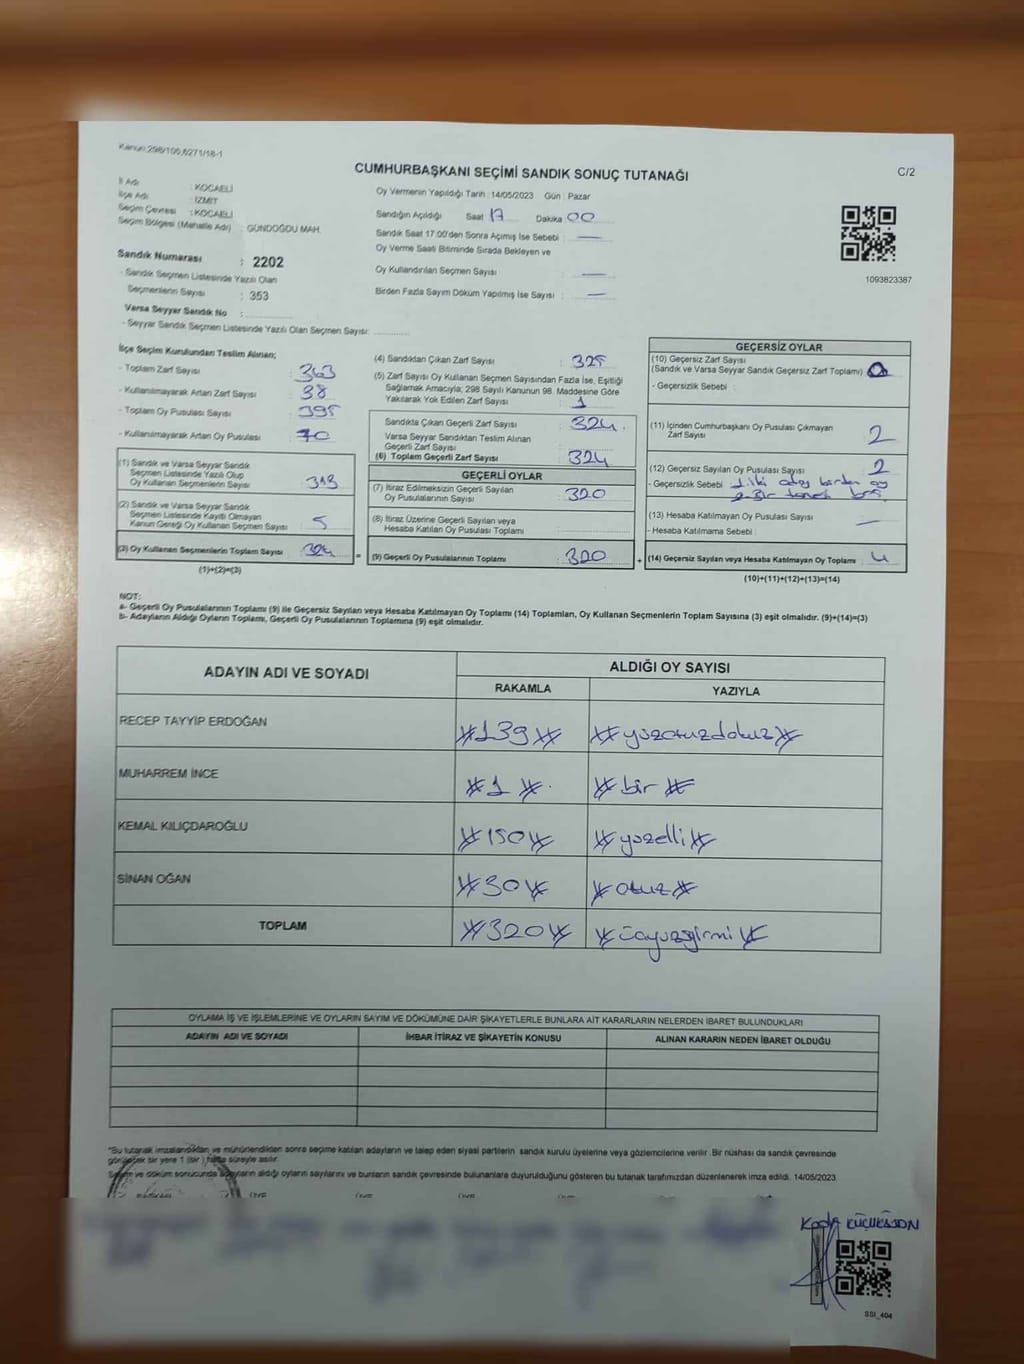 Kanun:298/100,6271/18-1
CUMHURBAŞKANI SEÇİMİ SANDIK SONUÇ TUTANAĞI
C/2
İl Adı : KOCAELİ
İlçe Adı : İZMİT
Seçim Çevresi : KOCAELİ
Seçim Bölgesi (Mahalle Adı) : GÜNDOĞDU MAH.
Sandık Numarası : 2202
- Sandık Seçmen Listesinde Yazılı Olan
Seçmenlerin Sayısı : 353
Varsa Seyyar Sandık No :
- Seyyar Sandık Seçmen Listesinde Yazılı Olan Seçmen Sayısı:
Oy Vermenin Yapıldığı Tarih : 14/05/2023 Gün : Pazar
Sandığın Açıldığı Saat 17 Dakika 00
Sandık Saat 17.00'den Sonra Açılmış İse Sebebi : —
Oy Verme Saati Bitiminde Sırada Bekleyen ve
Oy Kullandırılan Seçmen Sayısı : —
Birden Fazla Sayım Döküm Yapılmış İse Sayısı : —
1093823387
İlçe Seçim Kurulundan Teslim Alınan;
- Toplam Zarf Sayısı : 363
- Kullanılmayarak Artan Zarf Sayısı : 38
- Toplam Oy Pusulası Sayısı : 395
- Kullanılmayarak Artan Oy Pusulası : 70
(1) Sandık ve Varsa Seyyar Sandık
Seçmen Listesinde Yazılı Olup
Oy Kullanan Seçmenlerin Sayısı :
(2) Sandık ve Varsa Seyyar Sandık
Seçmen Listesinde Kayıtlı Olmayan
Kanun Gereği Oy Kullanan Seçmen Sayısı : 5
(3) Oy Kullanan Seçmenlerin Toplam Sayısı : 324
(1)+(2)=(3)
(4) Sandıktan Çıkan Zarf Sayısı : 325
(5) Zarf Sayısı Oy Kullanan Seçmen Sayısından Fazla İse, Eşitliği
Sağlamak Amacıyla; 298 Sayılı Kanunun 98. Maddesine Göre
Yakılarak Yok Edilen Zarf Sayısı : 1
Sandıkta Çıkan Geçerli Zarf Sayısı : 324
Varsa Seyyar Sandıktan Teslim Alınan
Geçerli Zarf Sayısı :
(6) Toplam Geçerli Zarf Sayısı : 324
GEÇERLİ OYLAR
(7) İtiraz Edilmeksizin Geçerli Sayılan
Oy Pusulalarının Sayısı : 320
(8) İtiraz Üzerine Geçerli Sayılan veya
Hesaba Katılan Oy Pusulası Toplamı :
= (9) Geçerli Oy Pusulalarının Toplamı : 320 +
GEÇERSİZ OYLAR
(10) Geçersiz Zarf Sayısı
(Sandık ve Varsa Seyyar Sandık Geçersiz Zarf Toplamı) : 0
- Geçersizlik Sebebi :
(11) İçinden Cumhurbaşkanı Oy Pusulası Çıkmayan
Zarf Sayısı : 2
(12) Geçersiz Sayılan Oy Pusulası Sayısı : 2
- Geçersizlik Sebebi : 1. iki birden oy
2. Bir tanesi boş.
(13) Hesaba Katılmayan Oy Pusulası Sayısı : —
- Hesaba Katılmama Sebebi :
(14) Geçersiz Sayılan veya Hesaba Katılmayan Oy Toplamı : 4
(10)+(11)+(12)+(13)=(14)
NOT:
a- Geçerli Oy Pusulalarının Toplamı (9) ile Geçersiz Sayılan veya Hesaba Katılmayan Oy Toplamı (14) Toplamları, Oy Kullanan Seçmenlerin Toplam Sayısına (3) eşit olmalıdır. (9)+(14)=(3)
b- Adayların Aldığı Oyların Toplamı, Geçerli Oy Pusulalarının Toplamına (9) eşit olmalıdır.
ADAYIN ADI VE SOYADI ALDIĞI OY SAYISI
RAKAMLA YAZIYLA
RECEP TAYYİP ERDOĞAN #139# #yüzotuzdokuz#
MUHARREM İNCE #1# #bir#
KEMAL KILIÇDAROĞLU #150# #yüzelli#
SİNAN OĞAN #30# #otuz#
TOPLAM #320# #üçyüzyirmi#
OYLAMA İŞ VE İŞLEMLERİNE VE OYLARIN SAYIM VE DÖKÜMÜNE DAİR ŞİKAYETLERLE BUNLARA AİT KARARLARIN NELERDEN İBARET BULUNDUKLARI
ADAYIN ADI VE SOYADI İHBAR İTİRAZ VE ŞİKAYETİN KONUSU ALINAN KARARIN NEDEN İBARET OLDUĞU
*Bu tutanak imzalandıktan ve mühürlendikten sonra seçime katılan adayların ve talep eden siyasi partilerin sandık kurulu üyelerine veya gözlemcilerine verilir. Bir nüshası da sandık çevresinde
görülecek bir yere 1 (bir) hafta süreyle asılır.
Sayım ve döküm sonucunda adayların aldığı oyların sayılarını ve bunların sandık çevresinde bulunanlara duyurulduğunu gösteren bu tutanak tarafımızdan düzenlenerek imza edildi. 14/05/2023
SSI_404